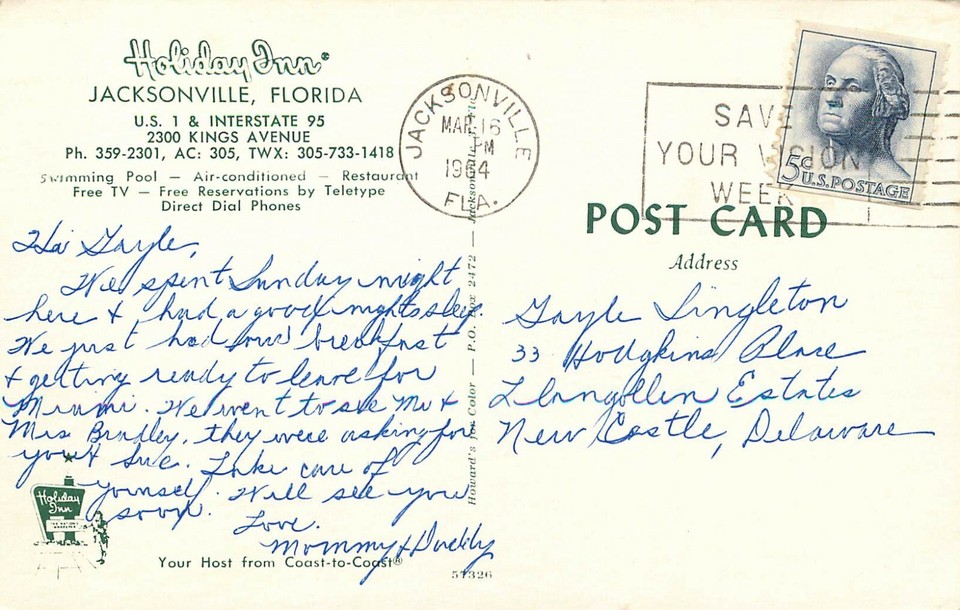 Holiday Inn®
JACKSONVILLE, FLORIDA
U.S. 1 & INTERSTATE 95
2300 KINGS AVENUE
Ph. 359-2301, AC: 305, TWX: 305-733-1418
Swimming Pool — Air-conditioned — Restaurant
Free TV — Free Reservations by Teletype
Direct Dial Phones
Hi Gayle,
We spent Sunday night
here & had a good nights sleep.
We just had our breakfast
& getting ready to leave for
Miami. We went to see Mr &
Mrs Bradley, they were asking for
you & Sue. Take care of
yourself. Will see you
soon.
Love.
Mommy & Daddy
Holiday
Inn
Your Host from Coast-to-Coast®
57326
Howard's Color — P.O. Box 2472 — Jacksonville, Fla.
JACKSONVILLE
MAR 16
PM
1964
FLA.
SAVE
YOUR VISION
WEEK
5¢
U.S. POSTAGE
POST CARD
Address
Gayle Singleton
33 Hodgkins Place
Llangollen Estates
New Castle, Delaware